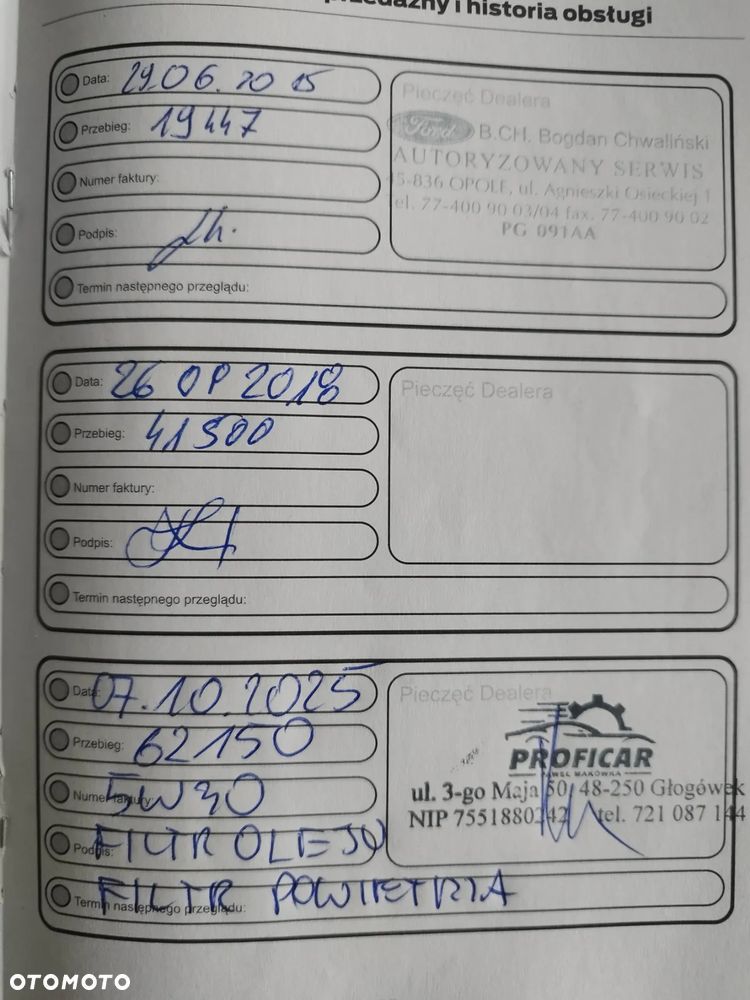 przedażny i historia obsługi
Data: 29.06.2015
Przebieg: 19447
Numer faktury:
Podpis:
Termin następnego przeglądu:
Pieczęć Dealera
Ford B.CH. Bogdan Chwaliński
AUTORYZOWANY SERWIS
45-836 OPOLE, ul. Agnieszki Osieckiej 1
tel. 77-400 90 03/04 fax. 77-400 90 02
PG 091AA
Data: 26 2018
Przebieg: 41500
Numer faktury:
Podpis:
Termin następnego przeglądu:
Pieczęć Dealera
Data: 07.10.2025
Przebieg: 62150
Numer faktury: 5W30
Podpis: FILTR OLEJU
Termin następnego przeglądu: FILTR POWIETRZA
Pieczęć Dealera
PROFICAR
PAWEŁ MAKÓWKA
ul. 3-go Maja 50, 48-250 Głogówek
NIP 7551880242 tel. 721 087 144
OTOMOTO